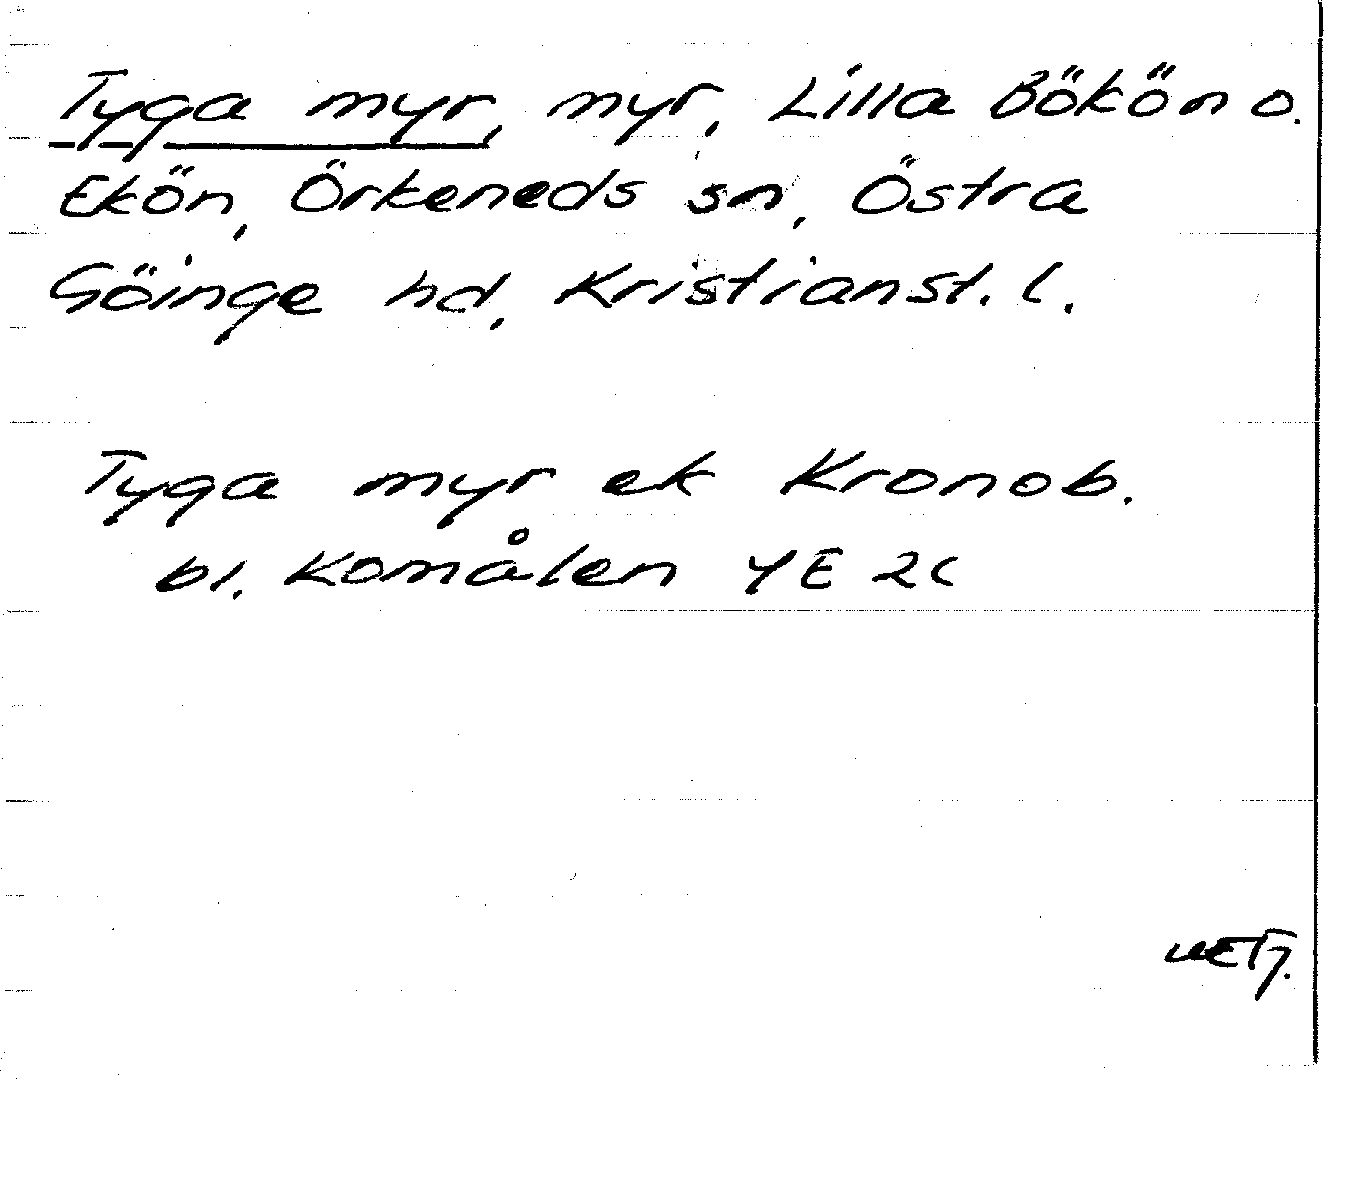 Tyga myr, myr, Lilla Bökön o.
Ekön, Örkeneds sn, Östra
Göinge hd, Kristianst. l.
Tyga myr ek Kronob.
bl. Komålen 4E 2c